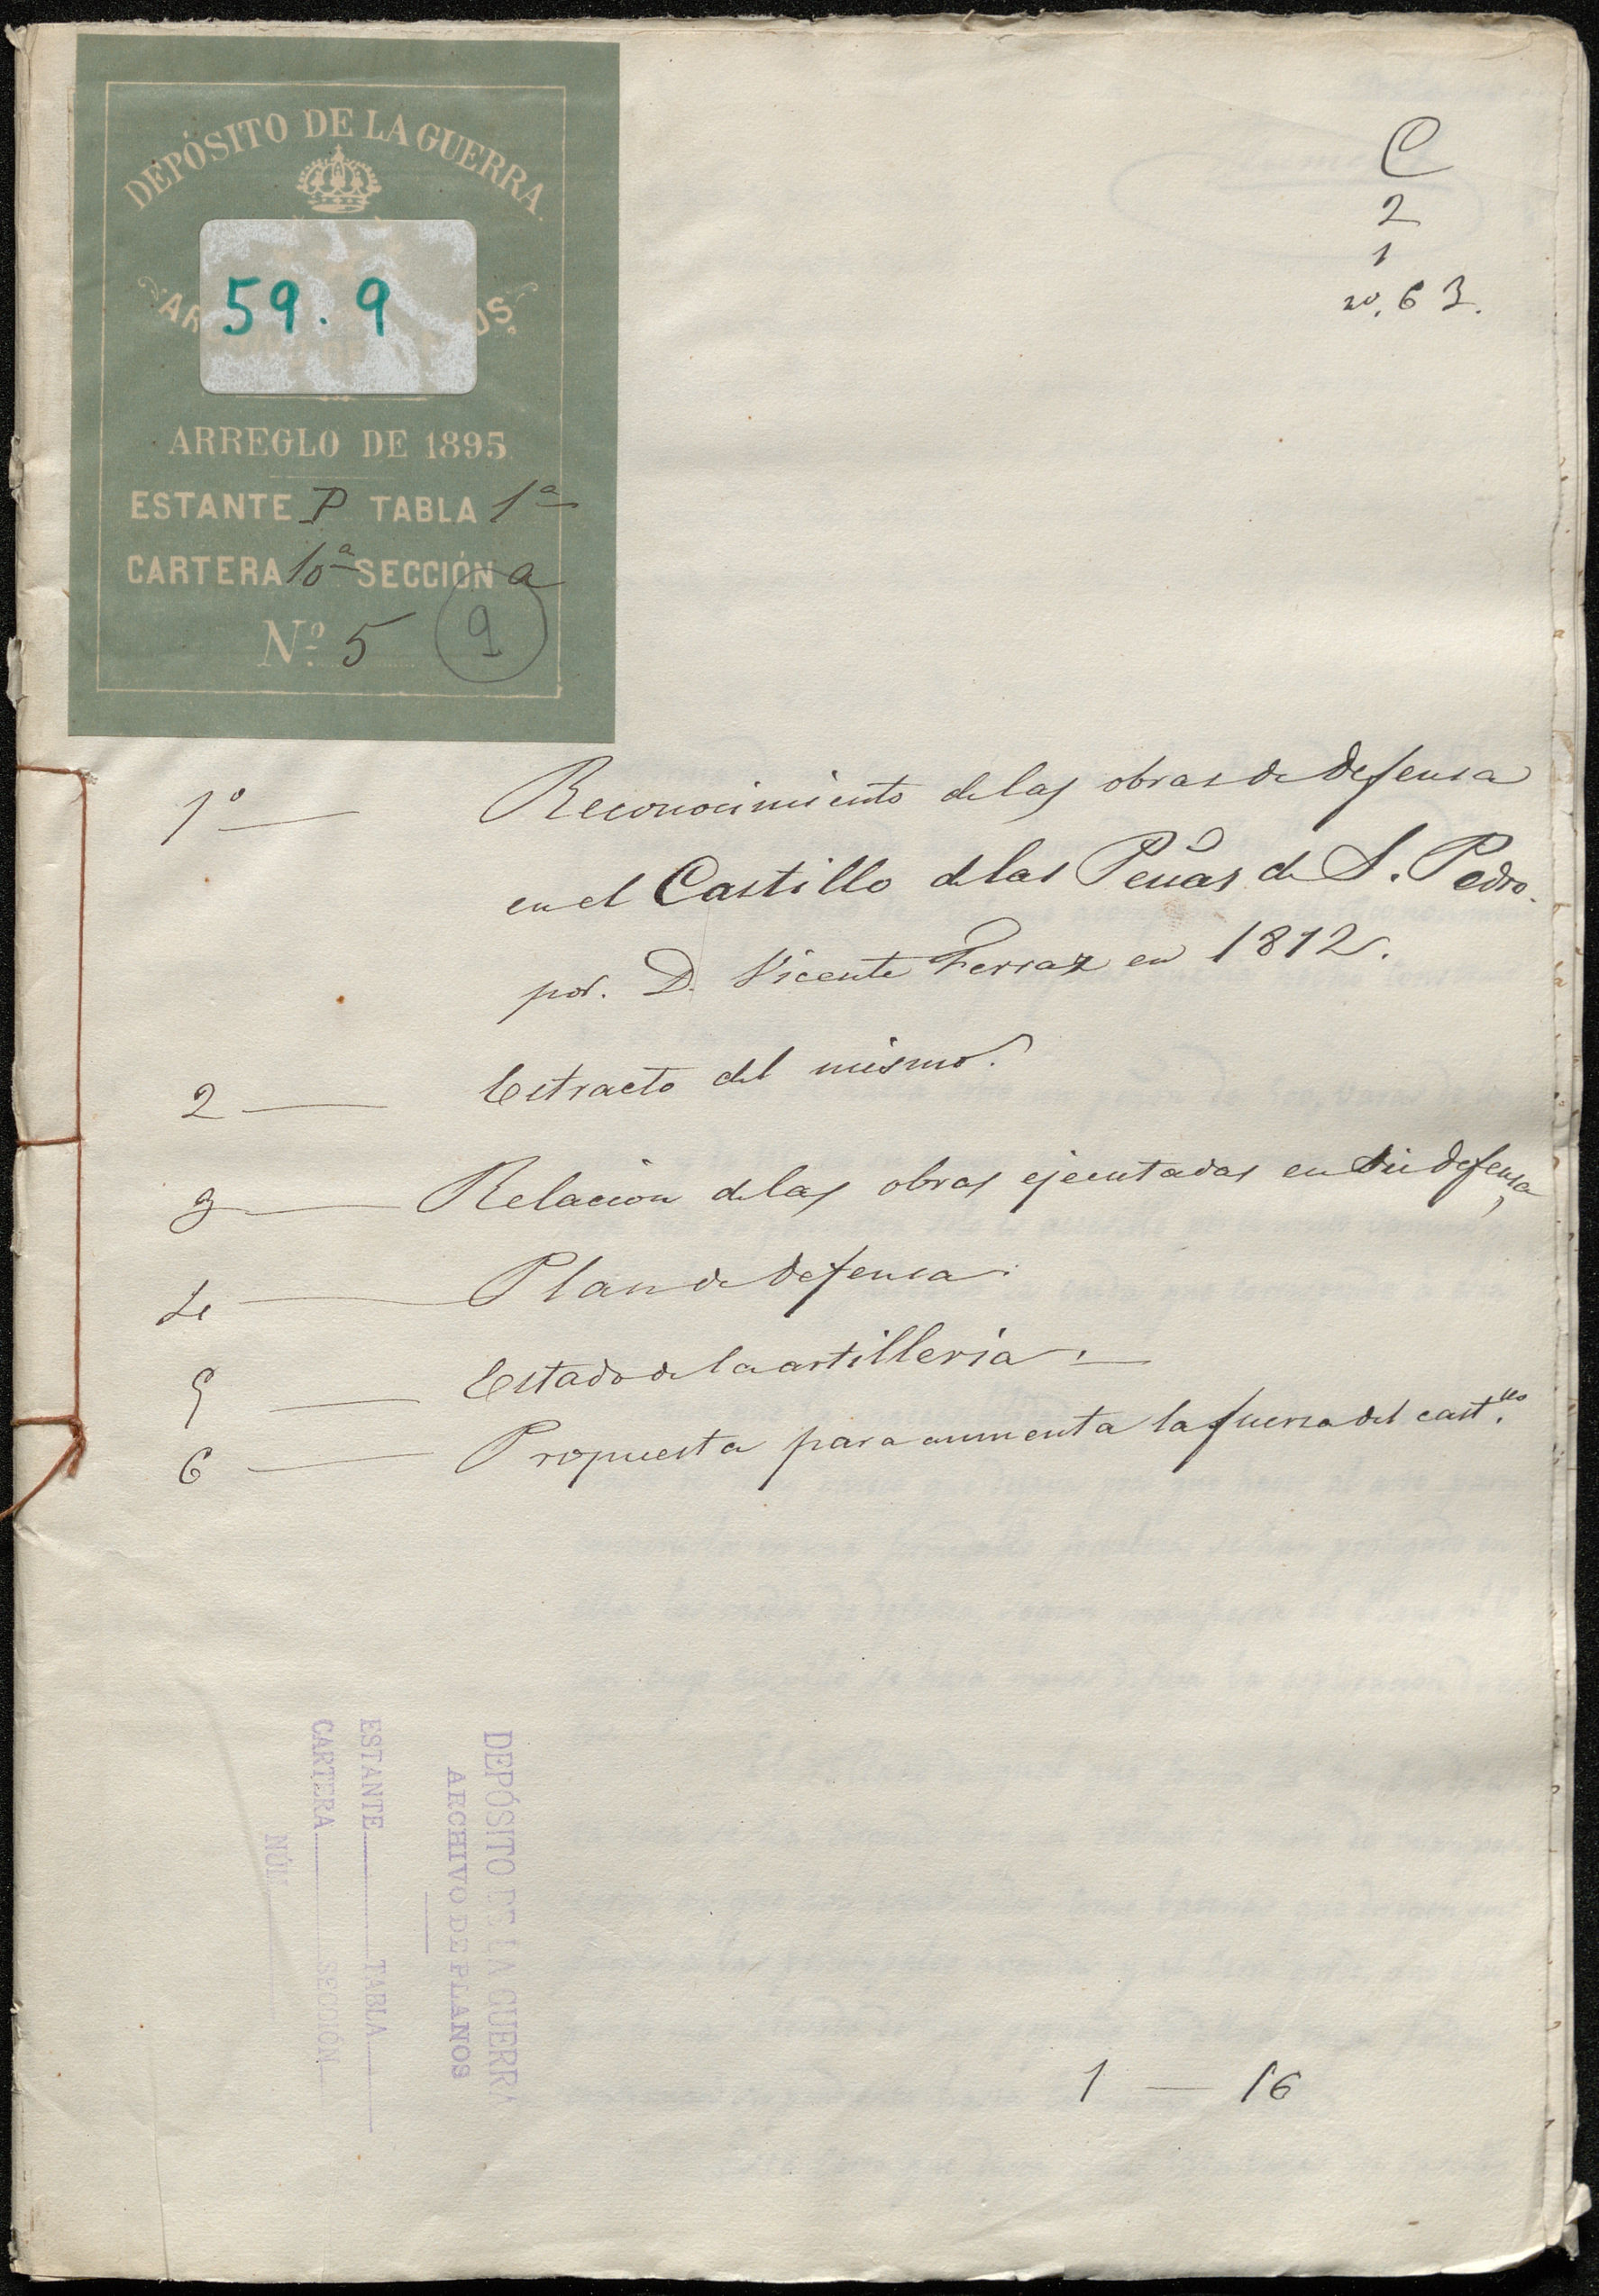 DEPÓSITO DE LA GUERRA.
59.9
ARREGLO DE 1895.
ESTANTE P TABLA 1ª
CARTERA 10ª SECCIÓN a
Nº 5 9
C
2
1
nº. 63.
1º — Reconocimiento de las obras de defensa
en el Castillo de las Peñas de S. Pedro.
por. D. Vicente Ferraz en 1812.
2 — Estracto del mismo.
3 — Relacion de las obras ejecutadas en su defensa,
4 — Plan de defensa.
5 — Estado de la artilleria. —
6 — Propuesta para aumenta la fuersa del cast.llo
DEPÓSITO DE LA GUERRA
ARCHIVO DE PLANOS
ESTANTE TABLA
CARTERA SECCIÓN
NÚM.
1 — 16